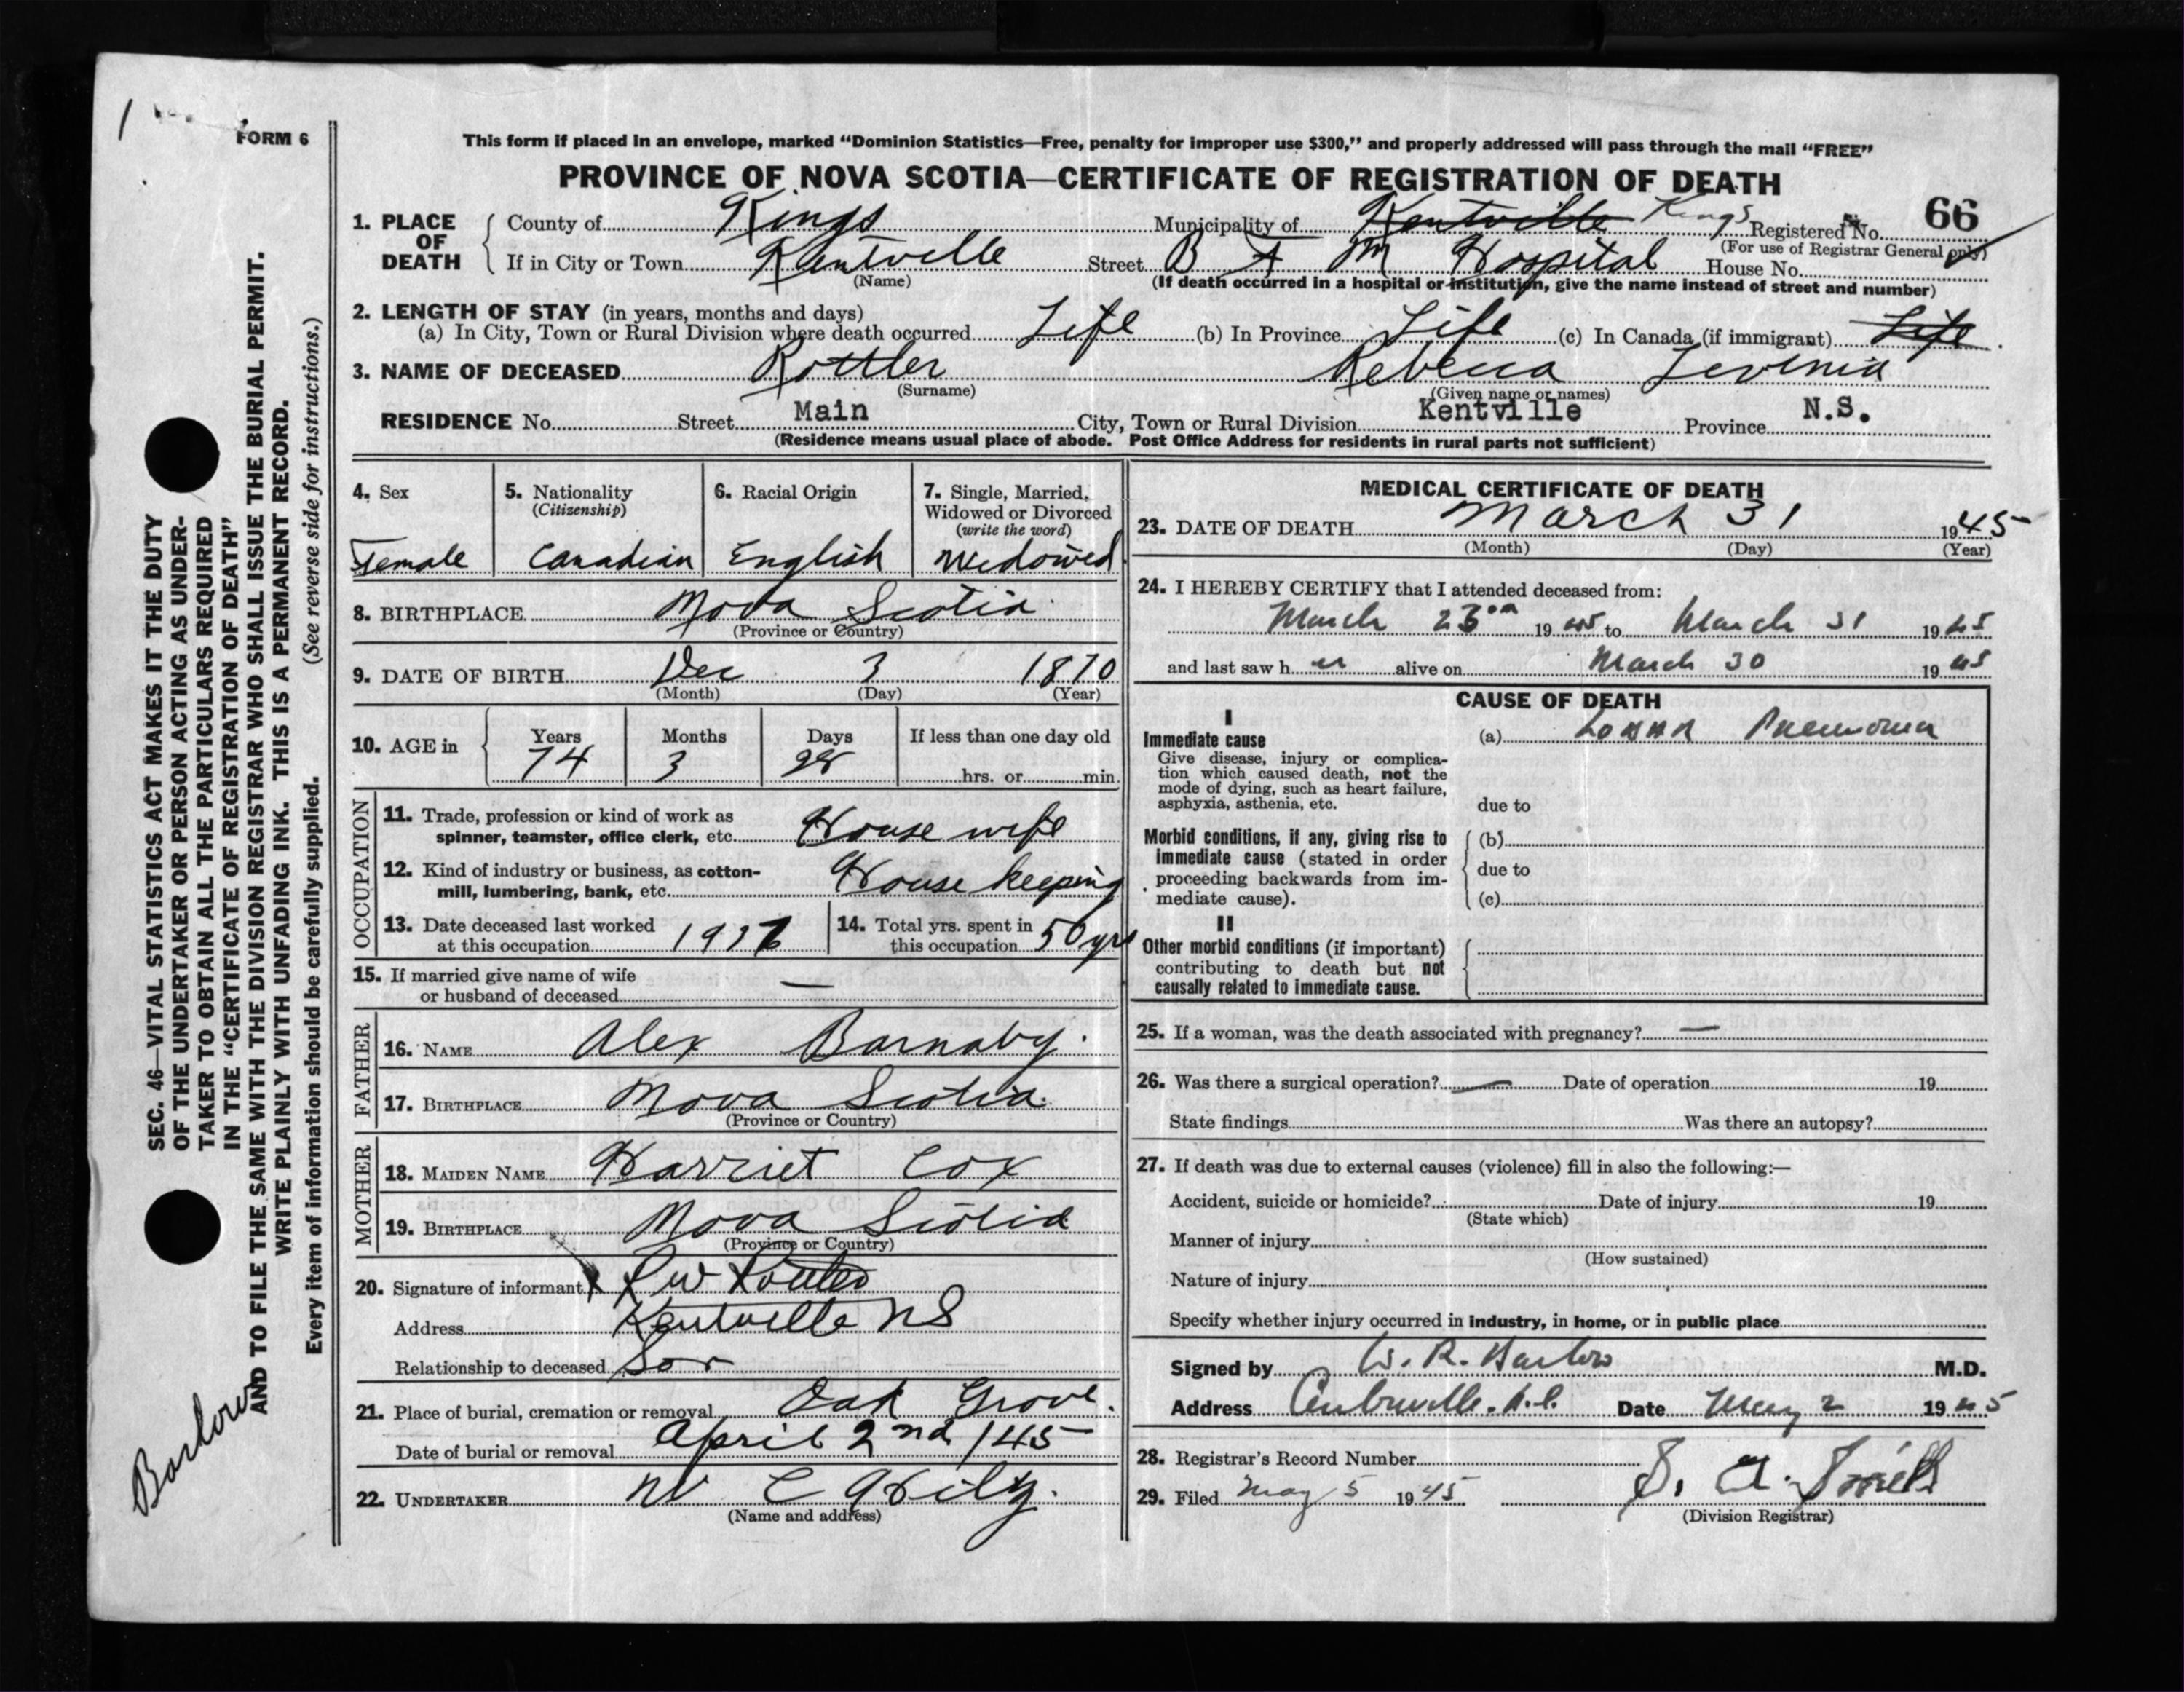 FORM 6
This form if placed in an envelope, marked “Dominion Statistics—Free, penalty for improper use $300,” and properly addressed will pass through the mail “FREE”
PROVINCE OF NOVA SCOTIA—CERTIFICATE OF REGISTRATION OF DEATH
1. PLACE OF DEATH
County of Kings Municipality of Kentville Kings Registered No. 66
(For use of Registrar General only)
If in City or Town Kentville Street B F M Hospital House No.
(Name) (If death occurred in a hospital or institution, give the name instead of street and number)
2. LENGTH OF STAY (in years, months and days)
(a) In City, Town or Rural Division where death occurred Life (b) In Province Life (c) In Canada (if immigrant) Life
3. NAME OF DECEASED Rottler Rebecca Levenia
(Surname) (Given name or names)
RESIDENCE No. Street Main City, Town or Rural Division Kentville Province N.S.
(Residence means usual place of abode. Post Office Address for residents in rural parts not sufficient)
SEC. 46—VITAL STATISTICS ACT MAKES IT THE DUTY
OF THE UNDERTAKER OR PERSON ACTING AS UNDER-
TAKER TO OBTAIN ALL THE PARTICULARS REQUIRED
IN THE “CERTIFICATE OF REGISTRATION OF DEATH”
AND TO FILE THE SAME WITH THE DIVISION REGISTRAR WHO SHALL ISSUE THE BURIAL PERMIT.
WRITE PLAINLY WITH UNFADING INK. THIS IS A PERMANENT RECORD.
Every item of information should be carefully supplied. (See reverse side for instructions.)
Barlow
4. Sex
Female
5. Nationality
(Citizenship)
Canadian
6. Racial Origin
English
7. Single, Married,
Widowed or Divorced
(write the word)
Widowed
8. BIRTHPLACE Nova Scotia
(Province or Country)
9. DATE OF BIRTH Dec 3 1870
(Month) (Day) (Year)
10. AGE in Years Months Days If less than one day old
74 3 28 hrs. or min.
OCCUPATION
11. Trade, profession or kind of work as
spinner, teamster, office clerk, etc. House wife
12. Kind of industry or business, as cotton-
mill, lumbering, bank, etc. House keeping
13. Date deceased last worked
at this occupation
14. Total yrs. spent in
this occupation 50 yrs
15. If married give name of wife
or husband of deceased —
FATHER
16. NAME Alex Barnaby.
17. BIRTHPLACE Nova Scotia.
(Province or Country)
MOTHER
18. MAIDEN NAME Harriet Cox
19. BIRTHPLACE Nova Scotia
(Province or Country)
20. Signature of informant
Address Kentville NS
Relationship to deceased Son
21. Place of burial, cremation or removal Oak Grove.
Date of burial or removal April 2nd /45
22. UNDERTAKER W C Hiltz.
(Name and address)
MEDICAL CERTIFICATE OF DEATH
23. DATE OF DEATH March 31 1945
(Month) (Day) (Year)
24. I HEREBY CERTIFY that I attended deceased from:
March 1945 to March 31 1945
and last saw her alive on March 30 1945
CAUSE OF DEATH
I
Immediate cause
Give disease, injury or complica-
tion which caused death, not the
mode of dying, such as heart failure,
asphyxia, asthenia, etc.
(a) Lobar Pneumonia
due to
Morbid conditions, if any, giving rise to
immediate cause (stated in order
proceeding backwards from im-
mediate cause).
(b)
due to
(c)
II
Other morbid conditions (if important)
contributing to death but not
causally related to immediate cause.
25. If a woman, was the death associated with pregnancy? —
26. Was there a surgical operation? — Date of operation 19
State findings Was there an autopsy?
27. If death was due to external causes (violence) fill in also the following:—
Accident, suicide or homicide? Date of injury 19
(State which)
Manner of injury
(How sustained)
Nature of injury
Specify whether injury occurred in industry, in home, or in public place
Signed by W. R. Barlow M.D.
Address Date May 2 1945
28. Registrar’s Record Number
29. Filed May 5 1945
(Division Registrar)